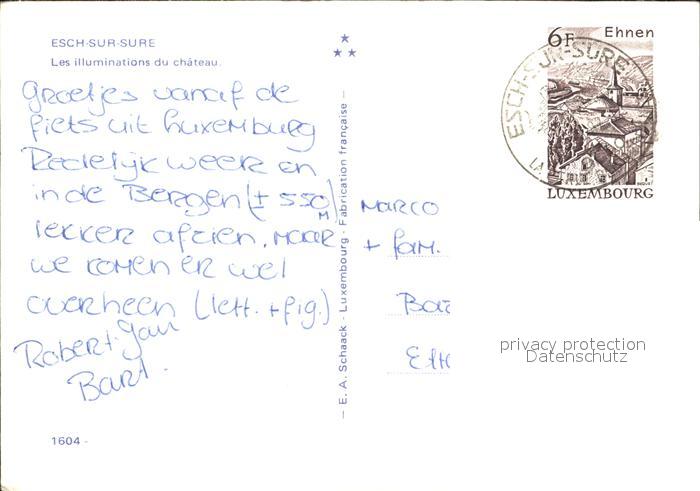 ESCH-SUR-SURE
Les illuminations du château.
Groetjes vanaf de
fiets uit Luxemburg
Redelijk weer en
in de Bergen (± 550 M)
lekker afzien, maar
we komen er wel
overheen (lett. + fig.)
Robert-Jan
Bart.
1604 -
— E. A. Schaack - Luxembourg - Fabrication française —
6F Ehnen
LUXEMBOURG
ESCH-SUR-SURE
Marco
+ fam.
privacy protection
Datenschutz